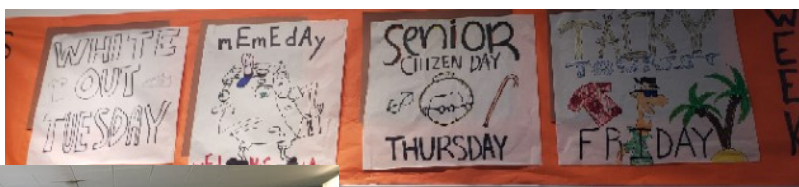 WHITE
OUT
TUESDAY
mEmEdAy
SENiOR
CITIZEN DAY
THURSDAY
TACKY
TOURIST
FRIDAY
WEEK